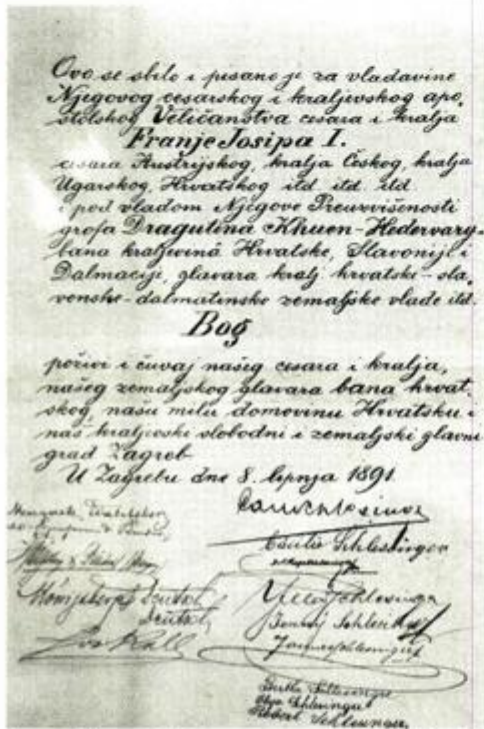 Ovo se zbilo i pisano je za vladavine
Njegovog cesarskog i kraljevskog apo-
stolskog Veličanstva cesara i kralja
Franje Josipa I.
cesara Austrijskog, kralja Českog, kralja
Ugarskog, Hrvatskog itd. itd. itd.
i pod vladom Njegove Preuzvišenosti
grofa Dragutina Khuen-Hedervary-
bana kraljevinâ Hrvatske, Slavonije i
Dalmacije, glavara kralj. hrvatske-sla-
vonske-dalmatinske zemaljske vlade itd.
Bog
poživi i čuvaj našeg cesara i kralja,
našeg zemaljskog glavara bana hrvat-
skog, našu milu domovinu Hrvatsku i
naš kraljevski slobodni i zemaljski glavni
grad Zagreb
U Zagrebu dne 8. lipnja 1891.
Schlesinger
Deutsch
Schlesinger
Deutsch
Schlesinger
Ivo Kall
Schlesinger
Schlesinger
Olga Schlesinger
Robert Schlesinger